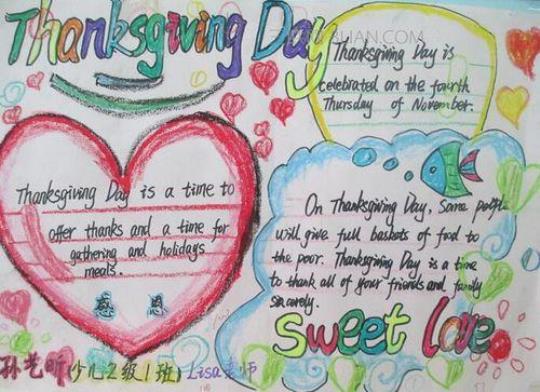 Thanksgiving Day
Thanksgiving Day is
celebrated on the fourth
Thursday of November.
Thanksgiving Day is a time to
offer thanks and a time for
gathering and holidays
meals.
感 恩
On Thanksgiving Day, Some people
will give full baskets of food to
the poor. Thanksgiving Day is a time
to thank all of your friends and family
sincerely.
Sweet love
孙艺昕(少儿2级1班) Lisa老师